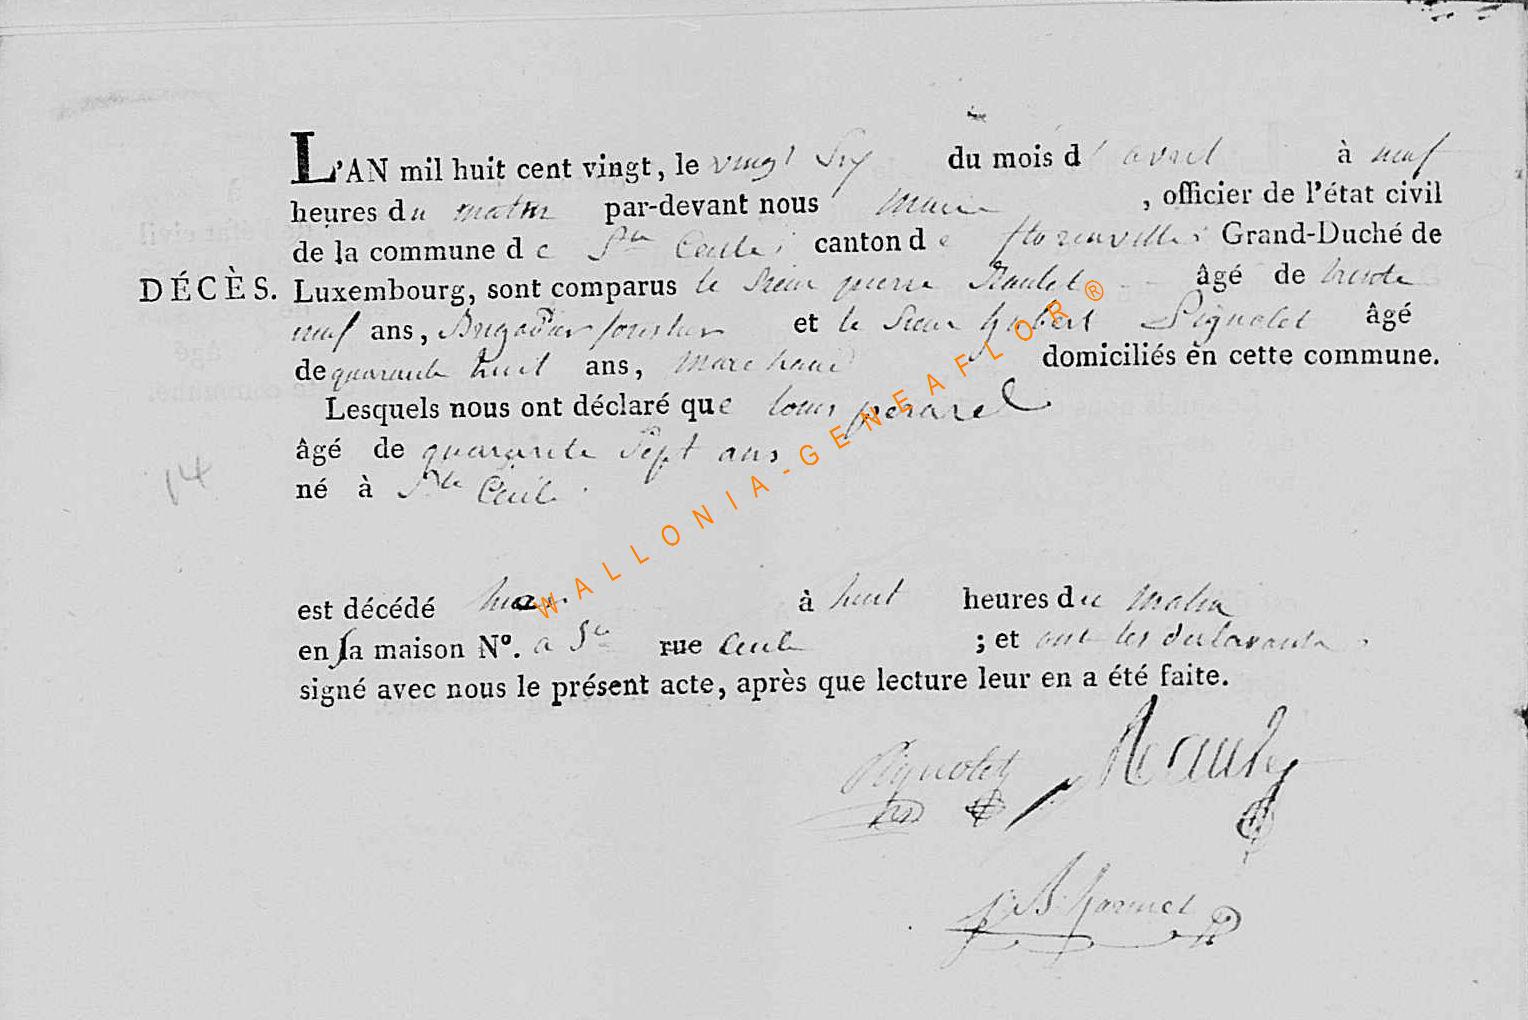 L'AN mil huit cent vingt, le vingt Six du mois d'avril à neuf
heures du matin par-devant nous maire, officier de l'état civil
de la commune de Ste Cecile canton de florenville Grand-Duché de
DÉCÈS. Luxembourg, sont comparus le Sieur pierre Raulet âgé de trente
neuf ans, Brigadier forestier et le Sieur hubert Pignolet âgé
de quarante huit ans, marchand domiciliés en cette commune.
Lesquels nous ont déclaré que louis perarel
âgé de quarante Sept ans
14
né à Ste Cecile.
WALLONIA-GENEAFLOR®
est décédé hier à huit heures du matin
en sa maison N°. a Ste rue Cecile ; et ont les déclarants
signé avec nous le présent acte, après que lecture leur en a été faite.
Pignolet Raulet